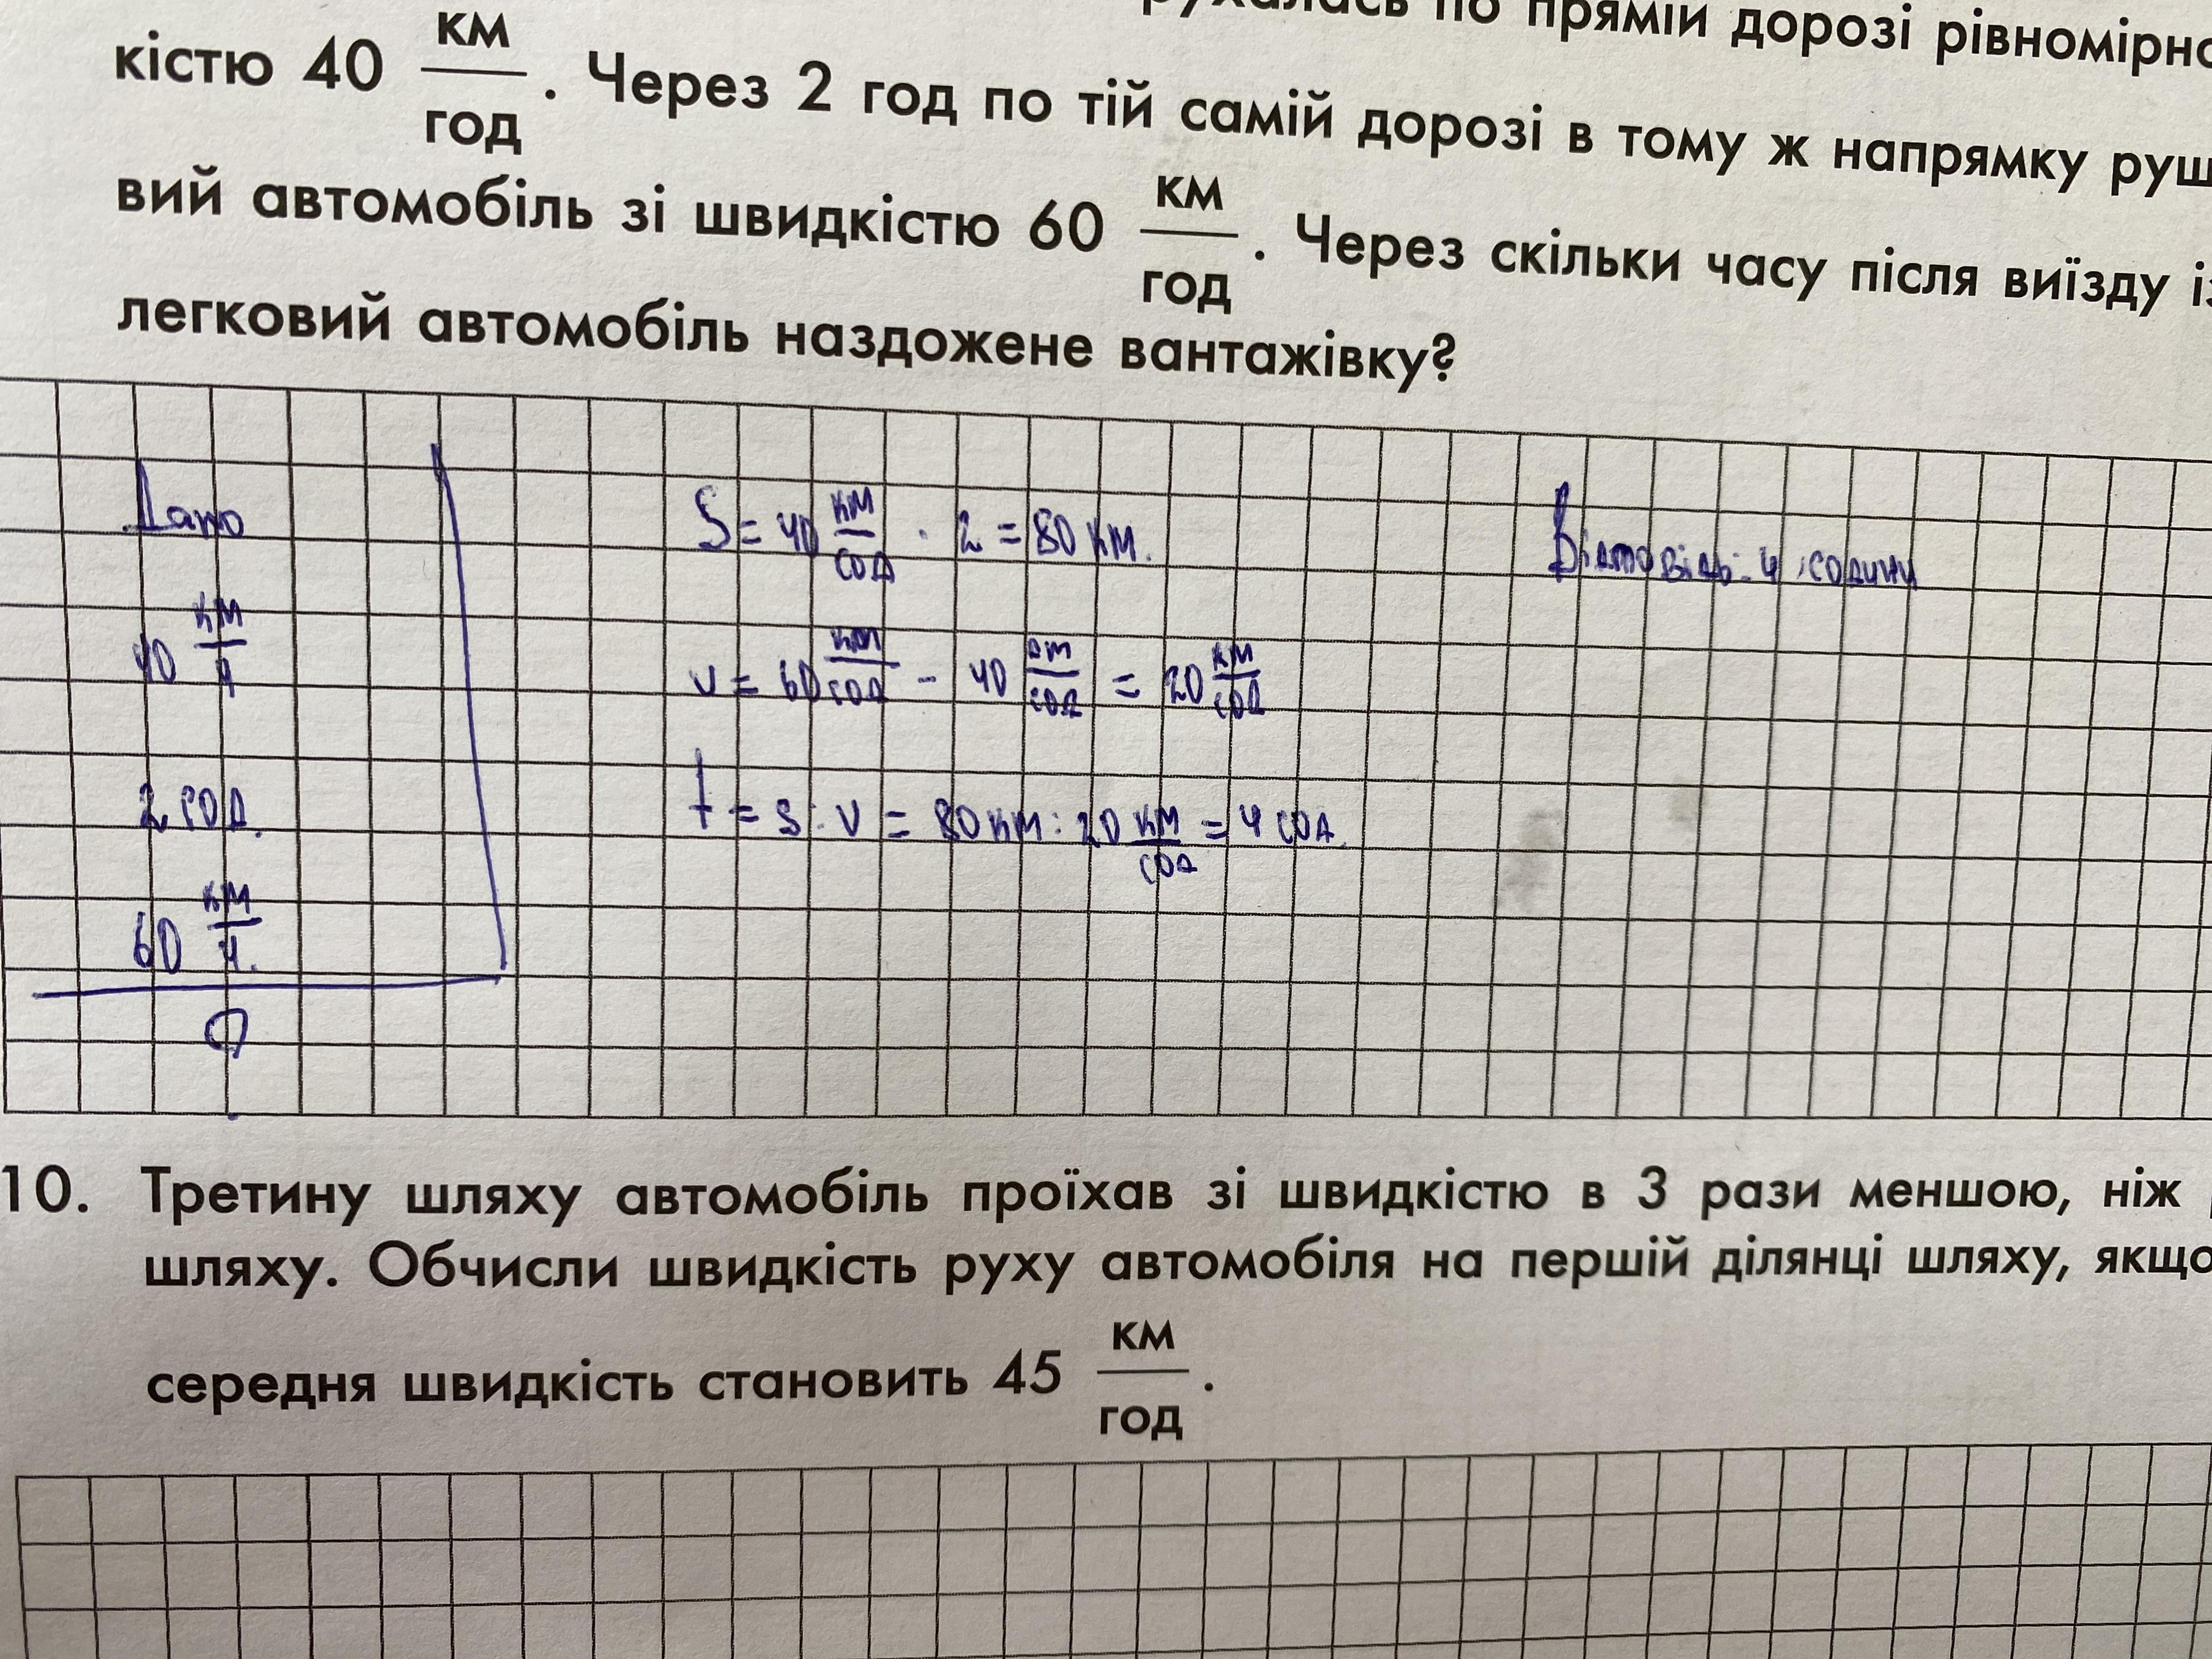 рухалась по прямій дорозі рівномірно
кістю 40 км/год. Через 2 год по тій самій дорозі в тому ж напрямку руш
вий автомобіль зі швидкістю 60 км/год. Через скільки часу після виїзду із
легковий автомобіль наздожене вантажівку?
Дано
40 км/ч
2 год.
60 км/ч.
?
S = 40 км/год · 2 = 80 км.
v = 60 км/год - 40 км/год = 20 км/год
t = s : v = 80 км : 20 км/год = 4 год.
Відповідь: 4 години
10. Третину шляху автомобіль проїхав зі швидкістю в 3 рази меншою, ніж
шляху. Обчисли швидкість руху автомобіля на першій ділянці шляху, якщо
середня швидкість становить 45 км/год.